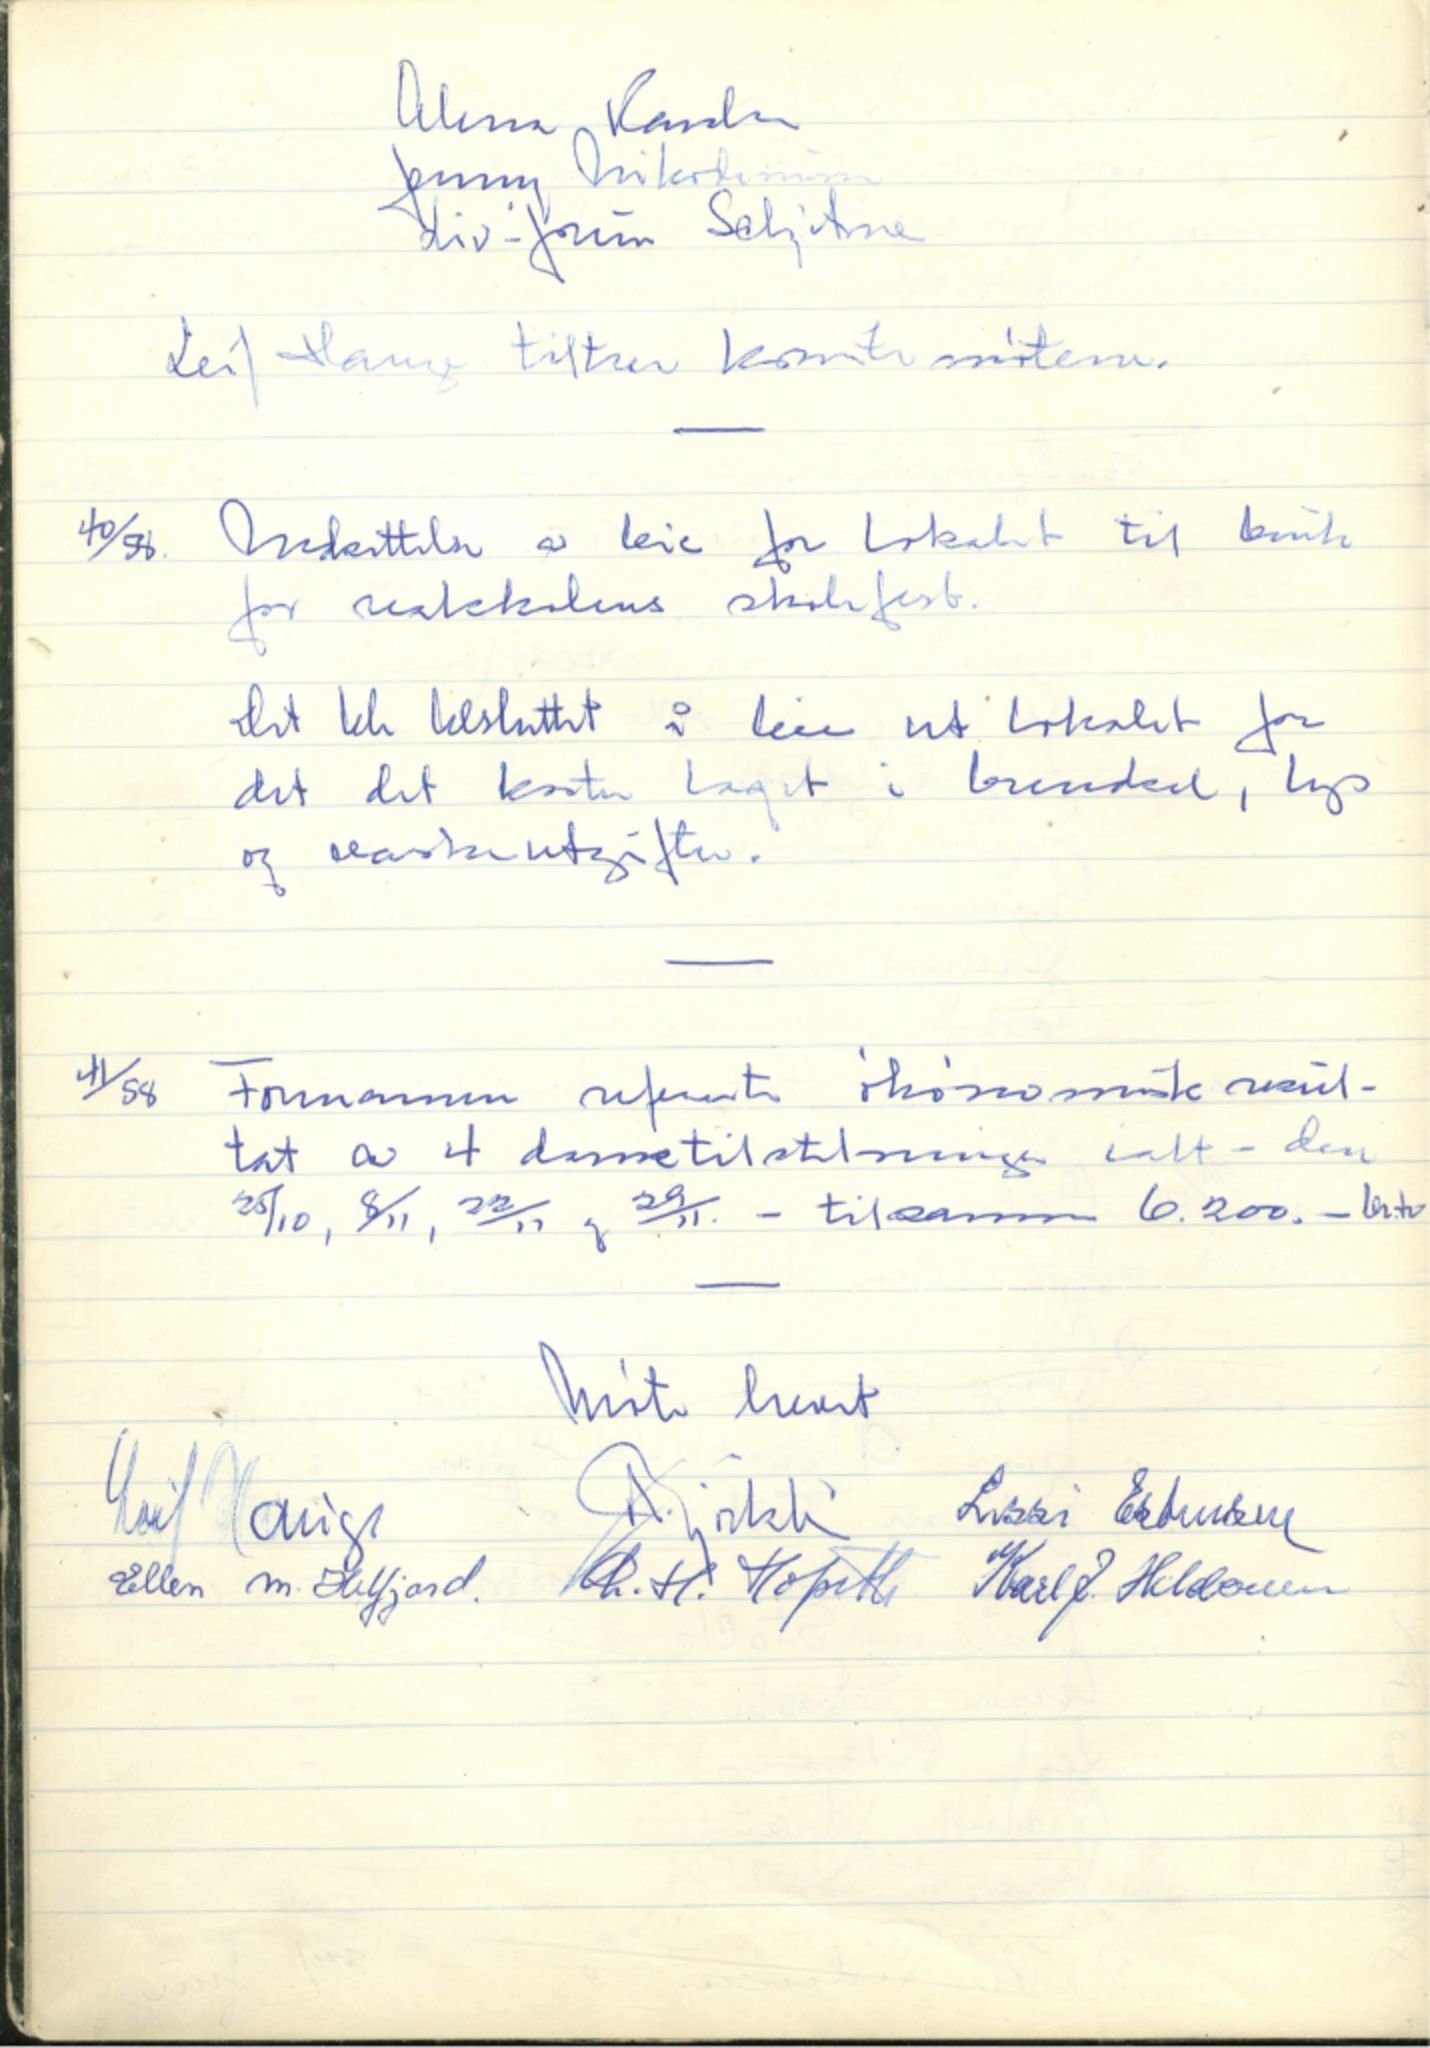 Jenny Nikodemusen
Liv-Jorun
Leif Hauge tiltrer komite møtene.
40/58. Nedsettelse av leie for lokalet til bruk
for realskolens skolefest.
Det ble besluttet å leie ut lokalet for
det det koster laget i brendsel, lys
og vaskeutgifter.
41/58 Formannen refererte økonomisk resul-
tat av 4 dansetilstelninger ialt - den
25/10, 8/11, 22/11 og 29/11. - tilsammen 6.200. - brto
Møte hevet
Leif Hauge Lissi
Ellen M. R. H. Karl J.